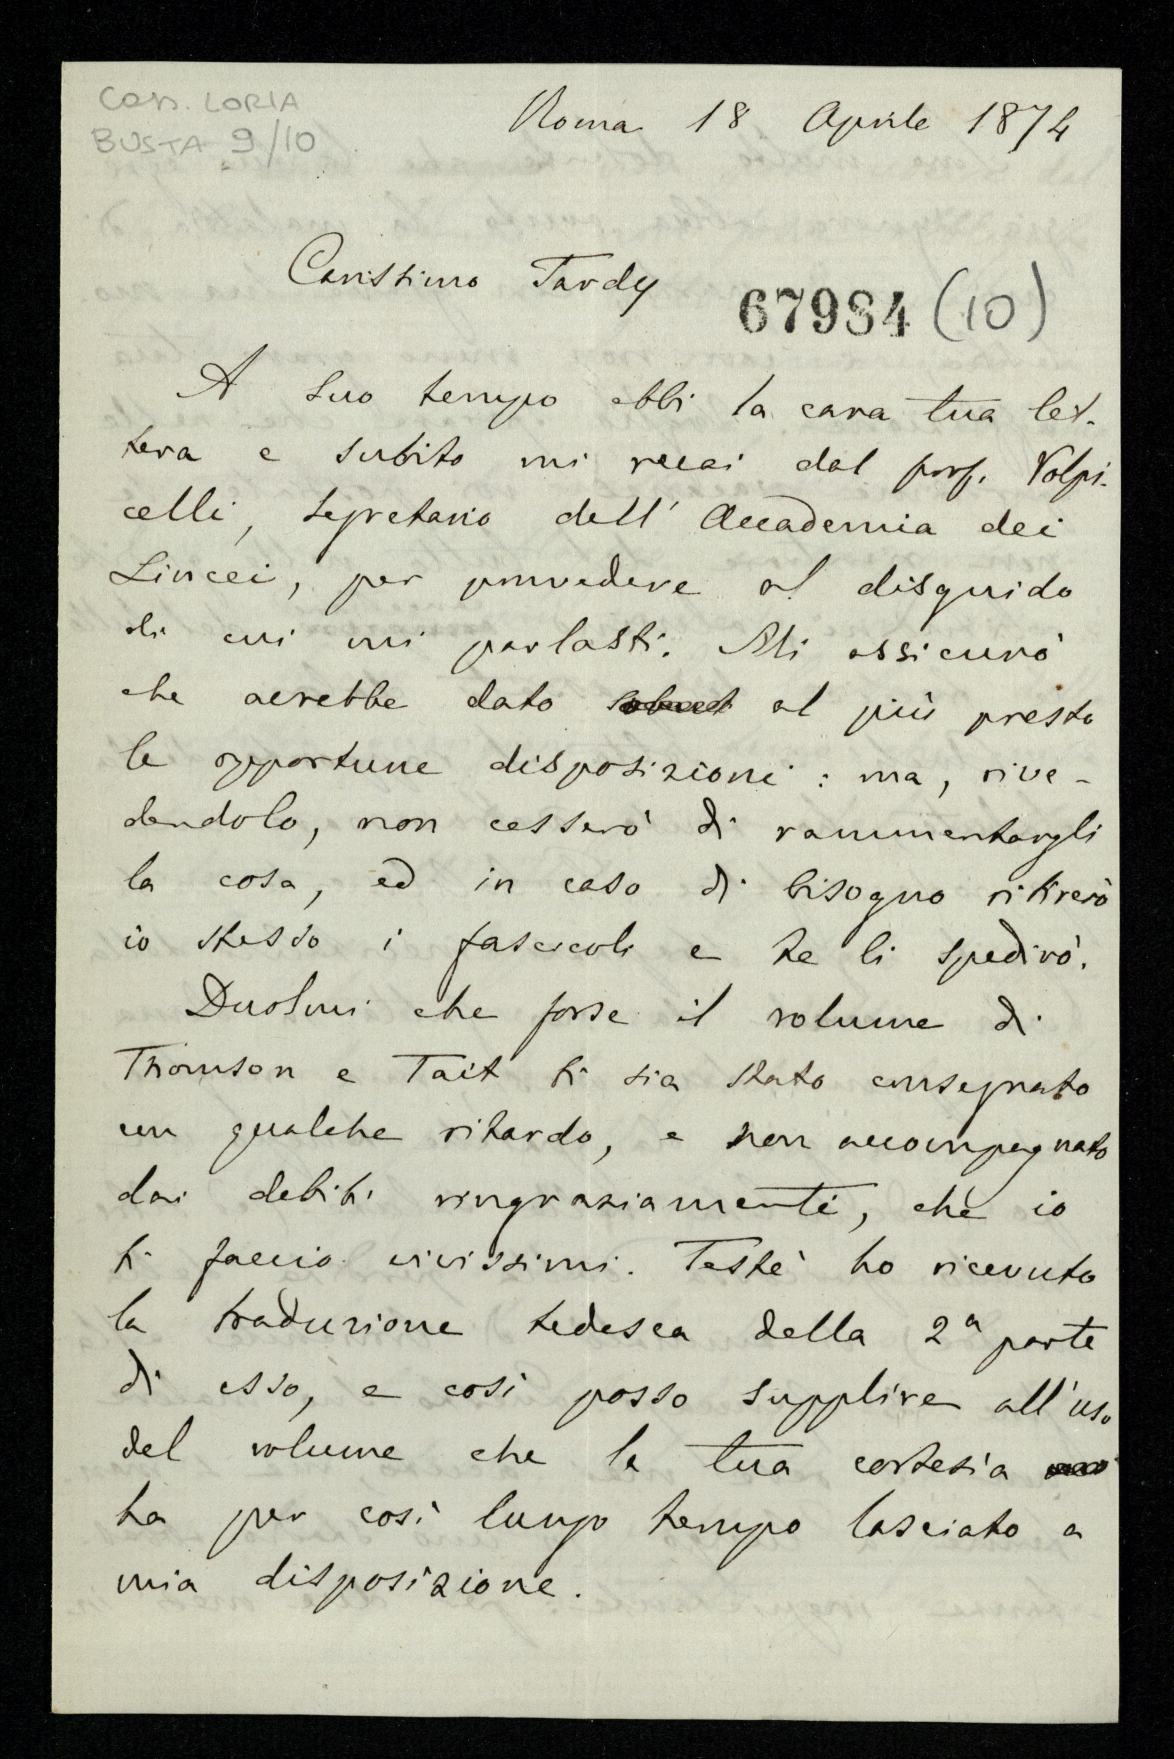 Cass. LORIA
BUSTA 9/10
Roma 18 Aprile 1874
Carissimo Tardy
67984 (10)
A suo tempo ebbi la cara tua let-
tera e subito mi recai dal prof. Volpi-
celli, segretario dell' Accademia dei
Lincei, per provvedere al disguido
di cui mi parlasti. Mi assicurò
che avrebbe dato al più presto
le opportune disposizioni: ma, rive-
dendolo, non cesserò di rammentargli
la cosa, ed in caso di bisogno ritirerò
io stesso i fascicoli e te li spedirò.
Duolmi che forse il volume di
Thomson e Tait ti sia stato consegnato
con qualche ritardo, e non accompagnato
dai debiti ringraziamenti, che io
ti faccio vivissimi. Testè ho ricevuto
la traduzione tedesca della 2ª parte
di esso, e così posso supplire all'uso
del volume che la tua cortesia
ha per così lungo tempo lasciato a
mia disposizione.